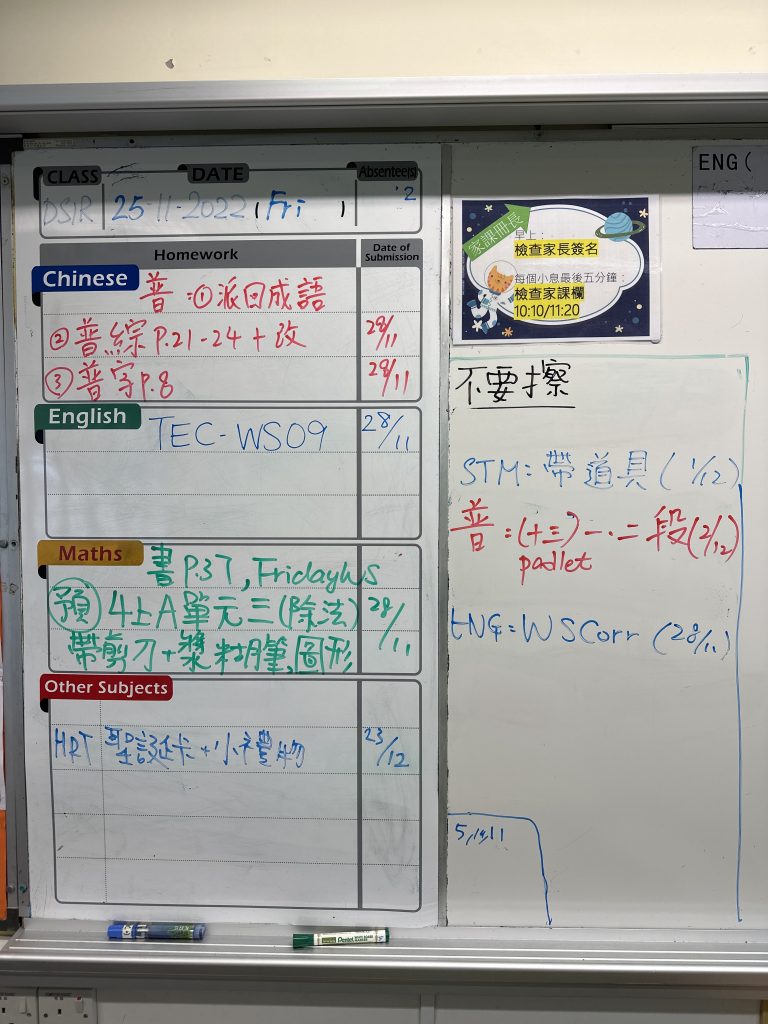 CLASS DATE Absentee(s)
DSIR 25-11-2022 (Fri) 2
Homework Date of Submission
Chinese
普:①派回成語
②普綜P.21-24+改 28/11
③普字p.8 28/11
English
TEC-WS09 28/11
Maths
書P.37, FridayWS
預 4上A單元三(除法) 28/11
帶剪刀+漿糊/膠筆,圖形
Other Subjects
HRT 聖誕卡+小禮物 23/12
ENG(
家課冊長
早上:
檢查家長簽名
每個小息最後五分鐘:
檢查家課欄
10:10/11:20
不要擦
STM: 帶道具(1/12)
普:(十三)一.二段(2/12)
padlet
ENG=WSCorr (28/11)
5,14,11
Pentel